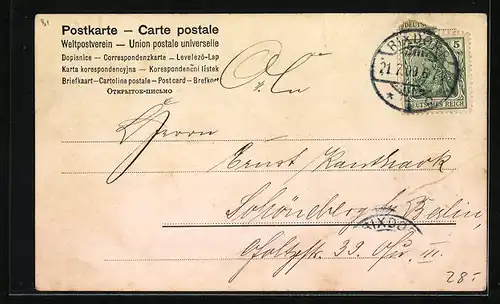 81
Postkarte — Carte postale
Weltpostverein — Union postale universelle
Dopisnice - Correspondenzkarte - Levelező-Lap
Karta korespondencyjna — Korespondenční listek
Briefkaart - Cartolina postale - Postcard - Brefkort
Открытое-письмо
RIXDORF
5
DEUTSCHES REICH
Herrn
Ernst
Schöneberg b/ Berlin,
39. III.
RIXDO
28.-